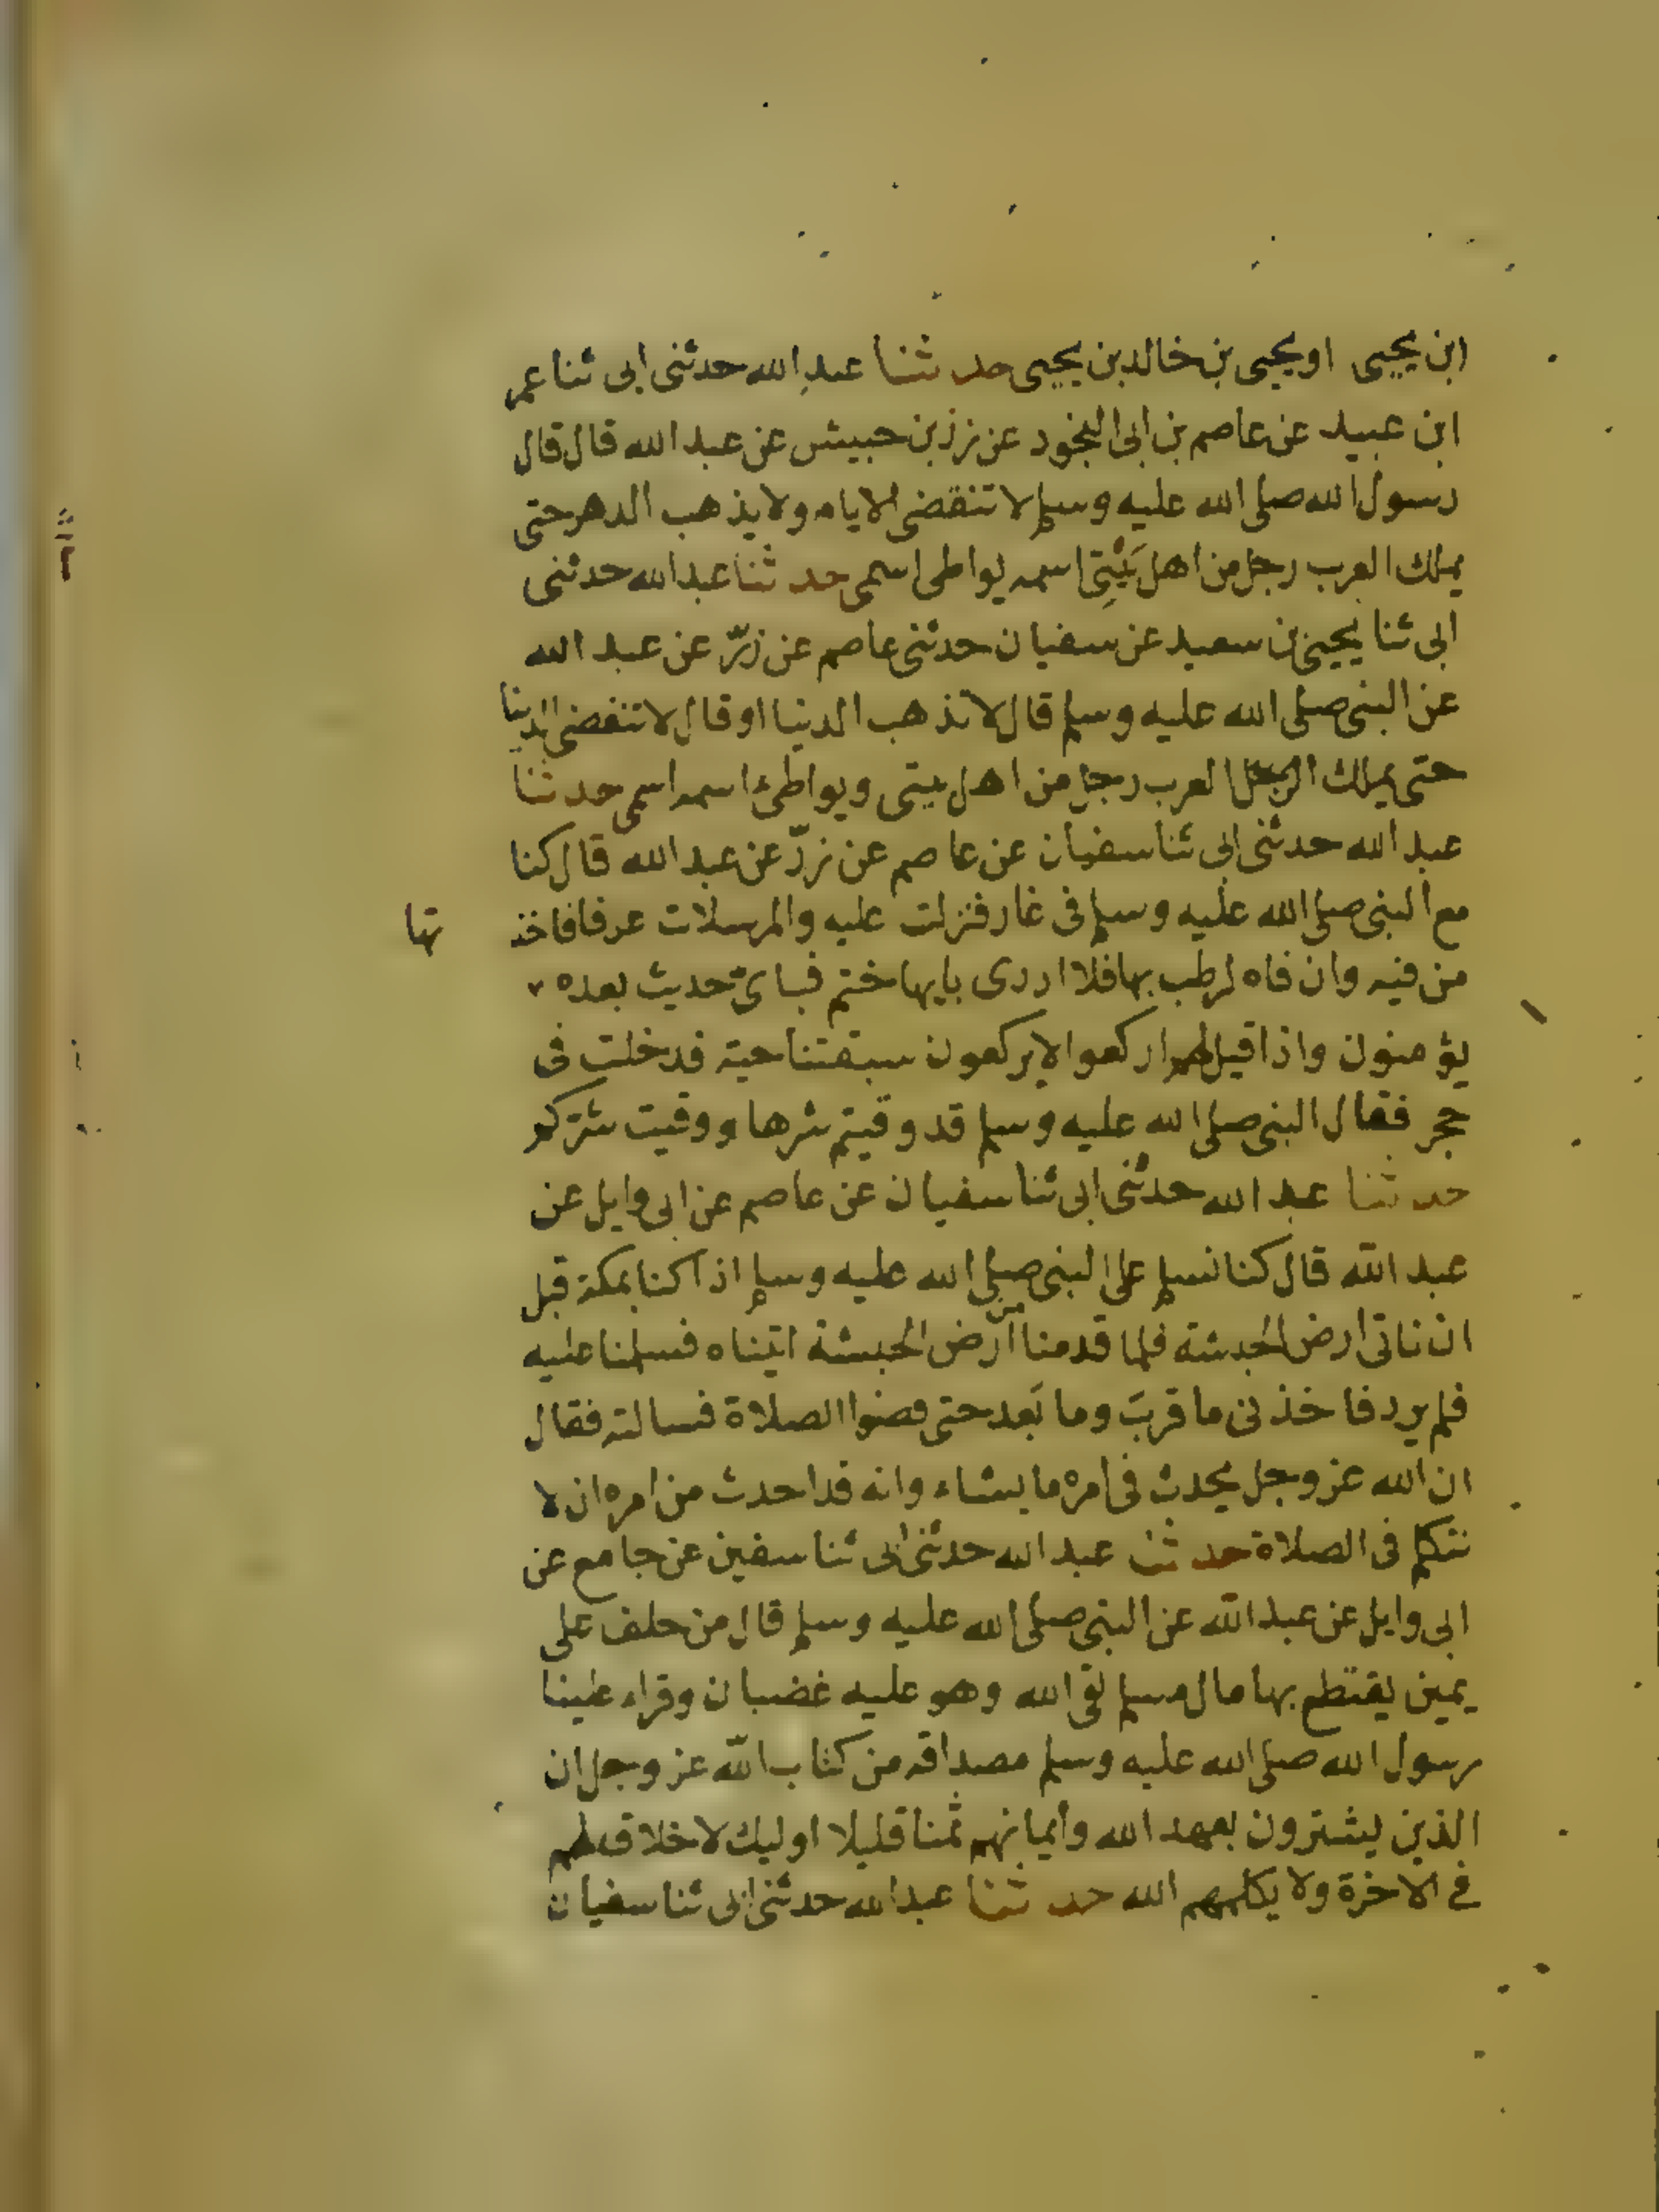 ابن يحيى او يحيى بن خالد بن يحيى حدثنا عبد الله حدثنى ابى ثنا عمر
ابن عبيد عن عاصم بن ابى النجود عن زر بن حبيش عن عبد الله قال قال
رسول الله صلى الله عليه وسلم لا تنقضى الايام ولا يذهب الدهر حتى
يملك العرب رجل من اهل بَيْتِى اسمه يواطى اسمى حدثنا عبد الله حدثنى
ابى ثنا يحيى بن سعيد عن سفيان حدثنى عاصم عن زرّ عن عبد الله
عن النبى صلى الله عليه وسلم قال لا تذهب الدنيا او قال لا تنقضى الدنيا
حتى يملك العرب رجل من اهل بيتى ويواطئ اسمه اسمى حدثنا
عبد الله حدثنى ابى ثنا سفيان عن عاصم عن زرّ عن عبد الله قال كنا
مع النبى صلى الله عليه وسلم فى غار فنزلت عليه والمرسلات عرفا فاخذ تها
من فيه وان فاه لرطب بها فلا ادرى بايها ختم فباىّ حديث بعده
يؤمنون واذا قيل لهم اركعوا لا يركعون سبقتنا حية فدخلت فى
جحر فقال النبى صلى الله عليه وسلم قد وقيتم شرها ووقيت شركم
حدثنا عبد الله حدثنى ابى ثنا سفيان عن عاصم عن ابى وايل عن
عبد الله قال كنا نسلم على النبى صلى الله عليه وسلم اذ كنا بمكة قبل
ان ناتى ارض الحبشة فلما قدمنا من ارض الحبشة اتيناه فسلمنا عليه
فلم يرد فاخذنى ما قربَ وما بَعد حتى قضوا الصلاة فسالته فقال
ان الله عز وجل يحدث فى امره ما يشاء وانه قد احدث من امره ان لا
نتكلم فى الصلاة حدثنا عبد الله حدثنى ابى ثنا سفين عن جامع عن
ابى وايل عن عبد الله عن النبى صلى الله عليه وسلم قال من حلف على
يمين يقتطع بها مال مسلم لقى الله وهو عليه غضبان وقراء علينا
رسول الله صلى الله عليه وسلم مصداقه من كتاب الله عز وجل ان
الذين يشترون بعهد الله وأيمانهم ثمنا قليلا اوليك لا خلاق لهم
فى الاخرة ولا يكلمهم الله حدثنا عبد الله حدثنى ابى ثنا سفيان